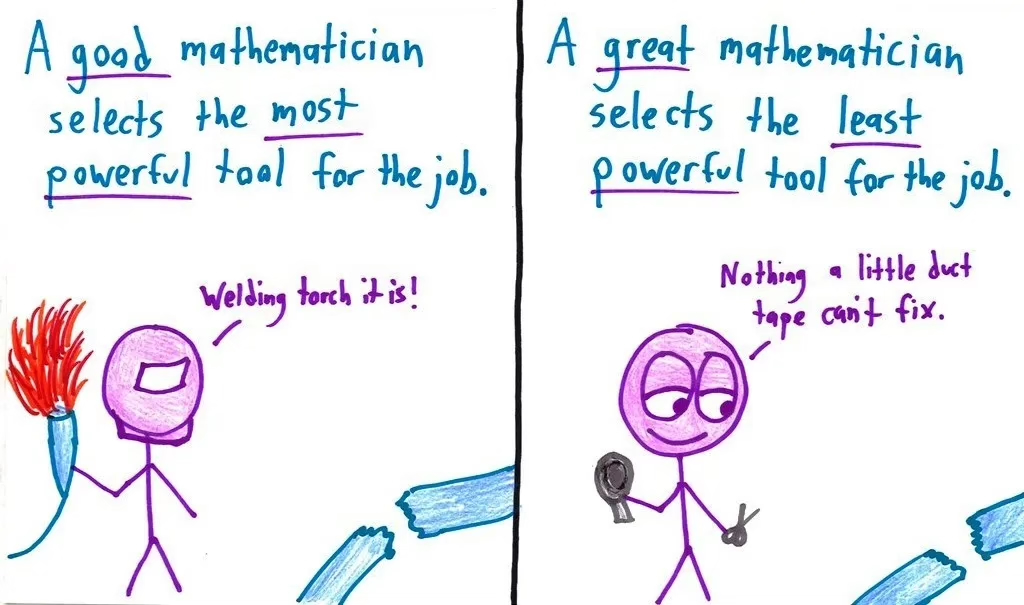 A good mathematician
selects the most
powerful tool for the job.
Welding torch it is!
A great mathematician
selects the least
powerful tool for the job.
Nothing a little duct
tape can't fix.